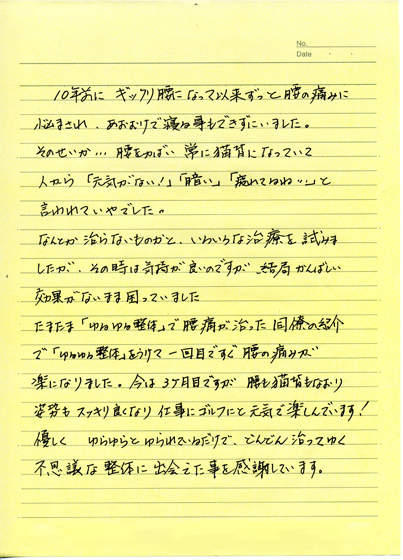 No.
Date ・ ・
10年前に ギックリ腰になって以来ずっと腰の痛みに
悩まされ、あおむけで寝る事もできずにいました。
そのせいか… 腰をかばい 常に猫背になっていて
人から「元気がない!」「暗い」「疲れてるね…」と
言われていやでした。
なんとか治らないものかと、いろいろな治療を試みま
したが、その時は気持が良いのですが 結局かんばしい
効果がないまま困っていました
たまたま「ゆるゆる整体」で腰痛が治った同僚の紹介
で「ゆるゆる整体」をうけて 一回目ですぐ腰の痛みが
楽になりました。今は3ヶ月目ですが 腰も猫背もなおり
姿勢も スッキリ良くなり 仕事にゴルフにと元気で楽しんでいます!
優しく ゆらゆらと ゆられているだけで、どんどん治ってゆく
不思議な整体に出会えた事を感謝しています。